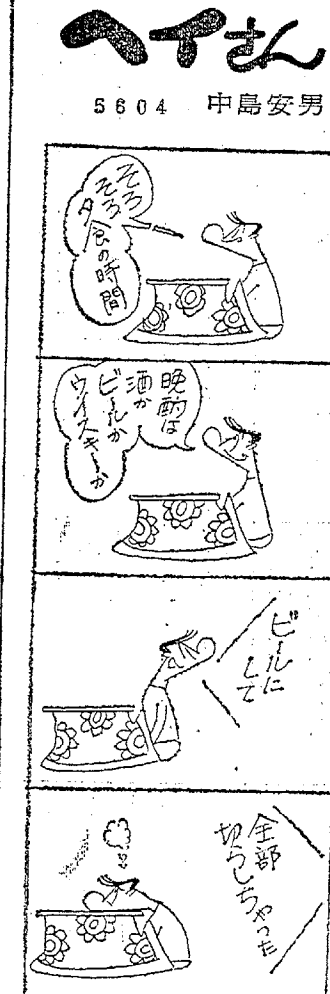 ヘイさん
5604 中島安男
そろ
そろ
夕
食の時間
晩酌は
酒か
ビールか
ウイスキーか
ビールに
して
全部
切らしちゃった